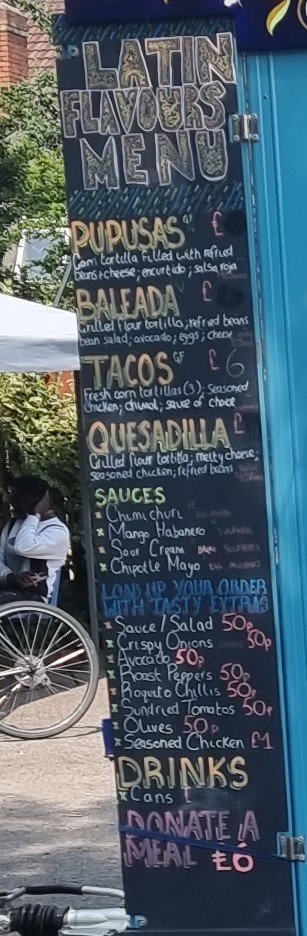 LATIN
FLAVOURS
MENU
PUPUSAS GF £
Corn tortilla filled with refried
beans + cheese; encurtido; salsa roja
BALEADA £
Grilled flour tortilla; refried beans
bean salad; avocado; eggs; cheese
TACOS GF £6
Fresh corn tortillas (3); Seasoned
chicken; chumol; sauce of choice
QUESADILLA £
Grilled flour tortilla; melty cheese;
seasoned chicken; refried beans
SAUCES
Chimichurri
Mango Habanero
Sour Cream
Chipotle Mayo
LOAD UP YOUR ORDER
WITH TASTY EXTRAS
Sauce / Salad 50p
Crispy Onions 50p
Avocado 50p
Roast Peppers 50p
Roquito Chillis 50p
Sundried Tomatos 50p
Olives 50p
Seasoned Chicken £1
DRINKS
Cans £
DONATE A
MEAL £6